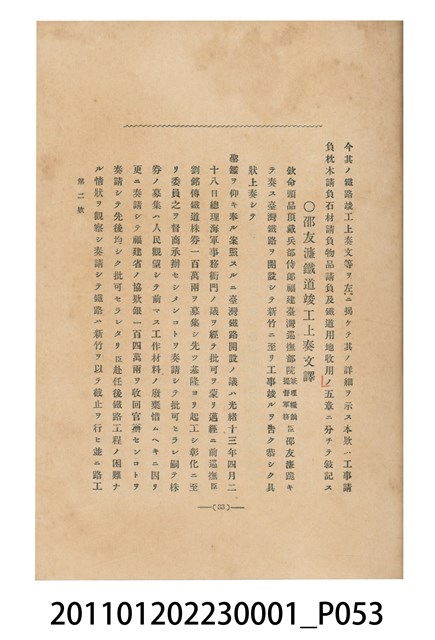 今其ノ鐵路竣工上奏文等ヲ左ニ揭ケ其ノ詳細ヲ示ス本款ハ工事請
負枕木請負石材請負物品請負及鐵道用地收用ノ五章ニ分チ敍記ス
〇邵友濂鐵道竣工上奏文譯
欽命頭品頂戴兵部侍郎福建臺灣巡撫部院 提督軍務 臣邵友濂跪キ
テ奏ス臺灣鐵路ヲ開設シテ新竹ニ至リ工事竣ルヲ告ク恭シク具
狀上奏シテ
聖鑑ヲ仰キ奉ル案照スルニ臺灣鐵路開設ノ議ハ光緒十三年四月二
十八日總理海軍事務衙門ノ議ヲ經テ批可ヲ蒙リ遇經ニ前巡撫臣
劉銘傳鐵道株劵一百萬兩ヲ募集シ先ツ基隆ヨリ起工シ彰化ニ至
リ委員之ヲ督商承辦セシメンコトヲ奏請シテ批可セラレ嗣テ株
劵ノ募集ハ人民觀望シテ前マス工作材料ノ廢棄惜ムヘキニ因リ
更ニ奏請シテ福建省ノ協款銀一百四萬兩ヲ收回官辦センコトヲ
奏請シテ先後均シク批可セラレタリ臣赴任後鐵路工程ノ困難ナ
ル情狀ヲ觀察シ奏請シテ鐵路ハ新竹ヲ以テ截止ヲ行ヒ並ニ路工
第二款
(33)
201101202230001_P053